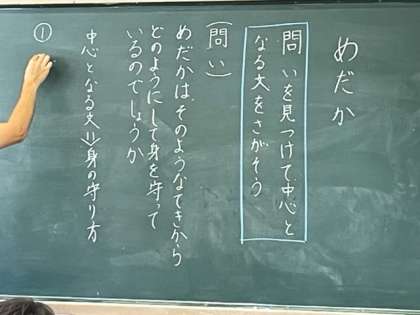 めだか
問いを見つけて、中心と
なる文をさがそう
(問い)
めだかは、そのようなてきから
どのようにして身を守って
いるのでしょうか
中心となる文⇒身の守り方
①